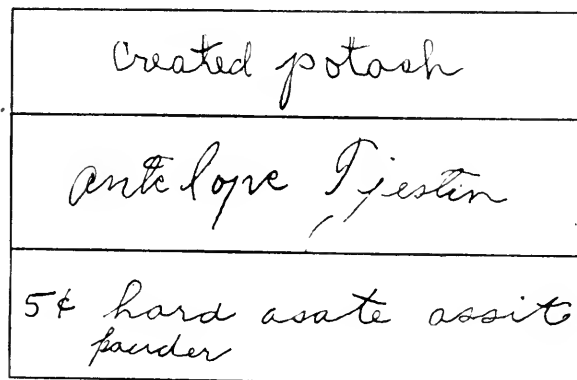 Created potash
antelope Tjestin
5¢ hard asate assit
pouder